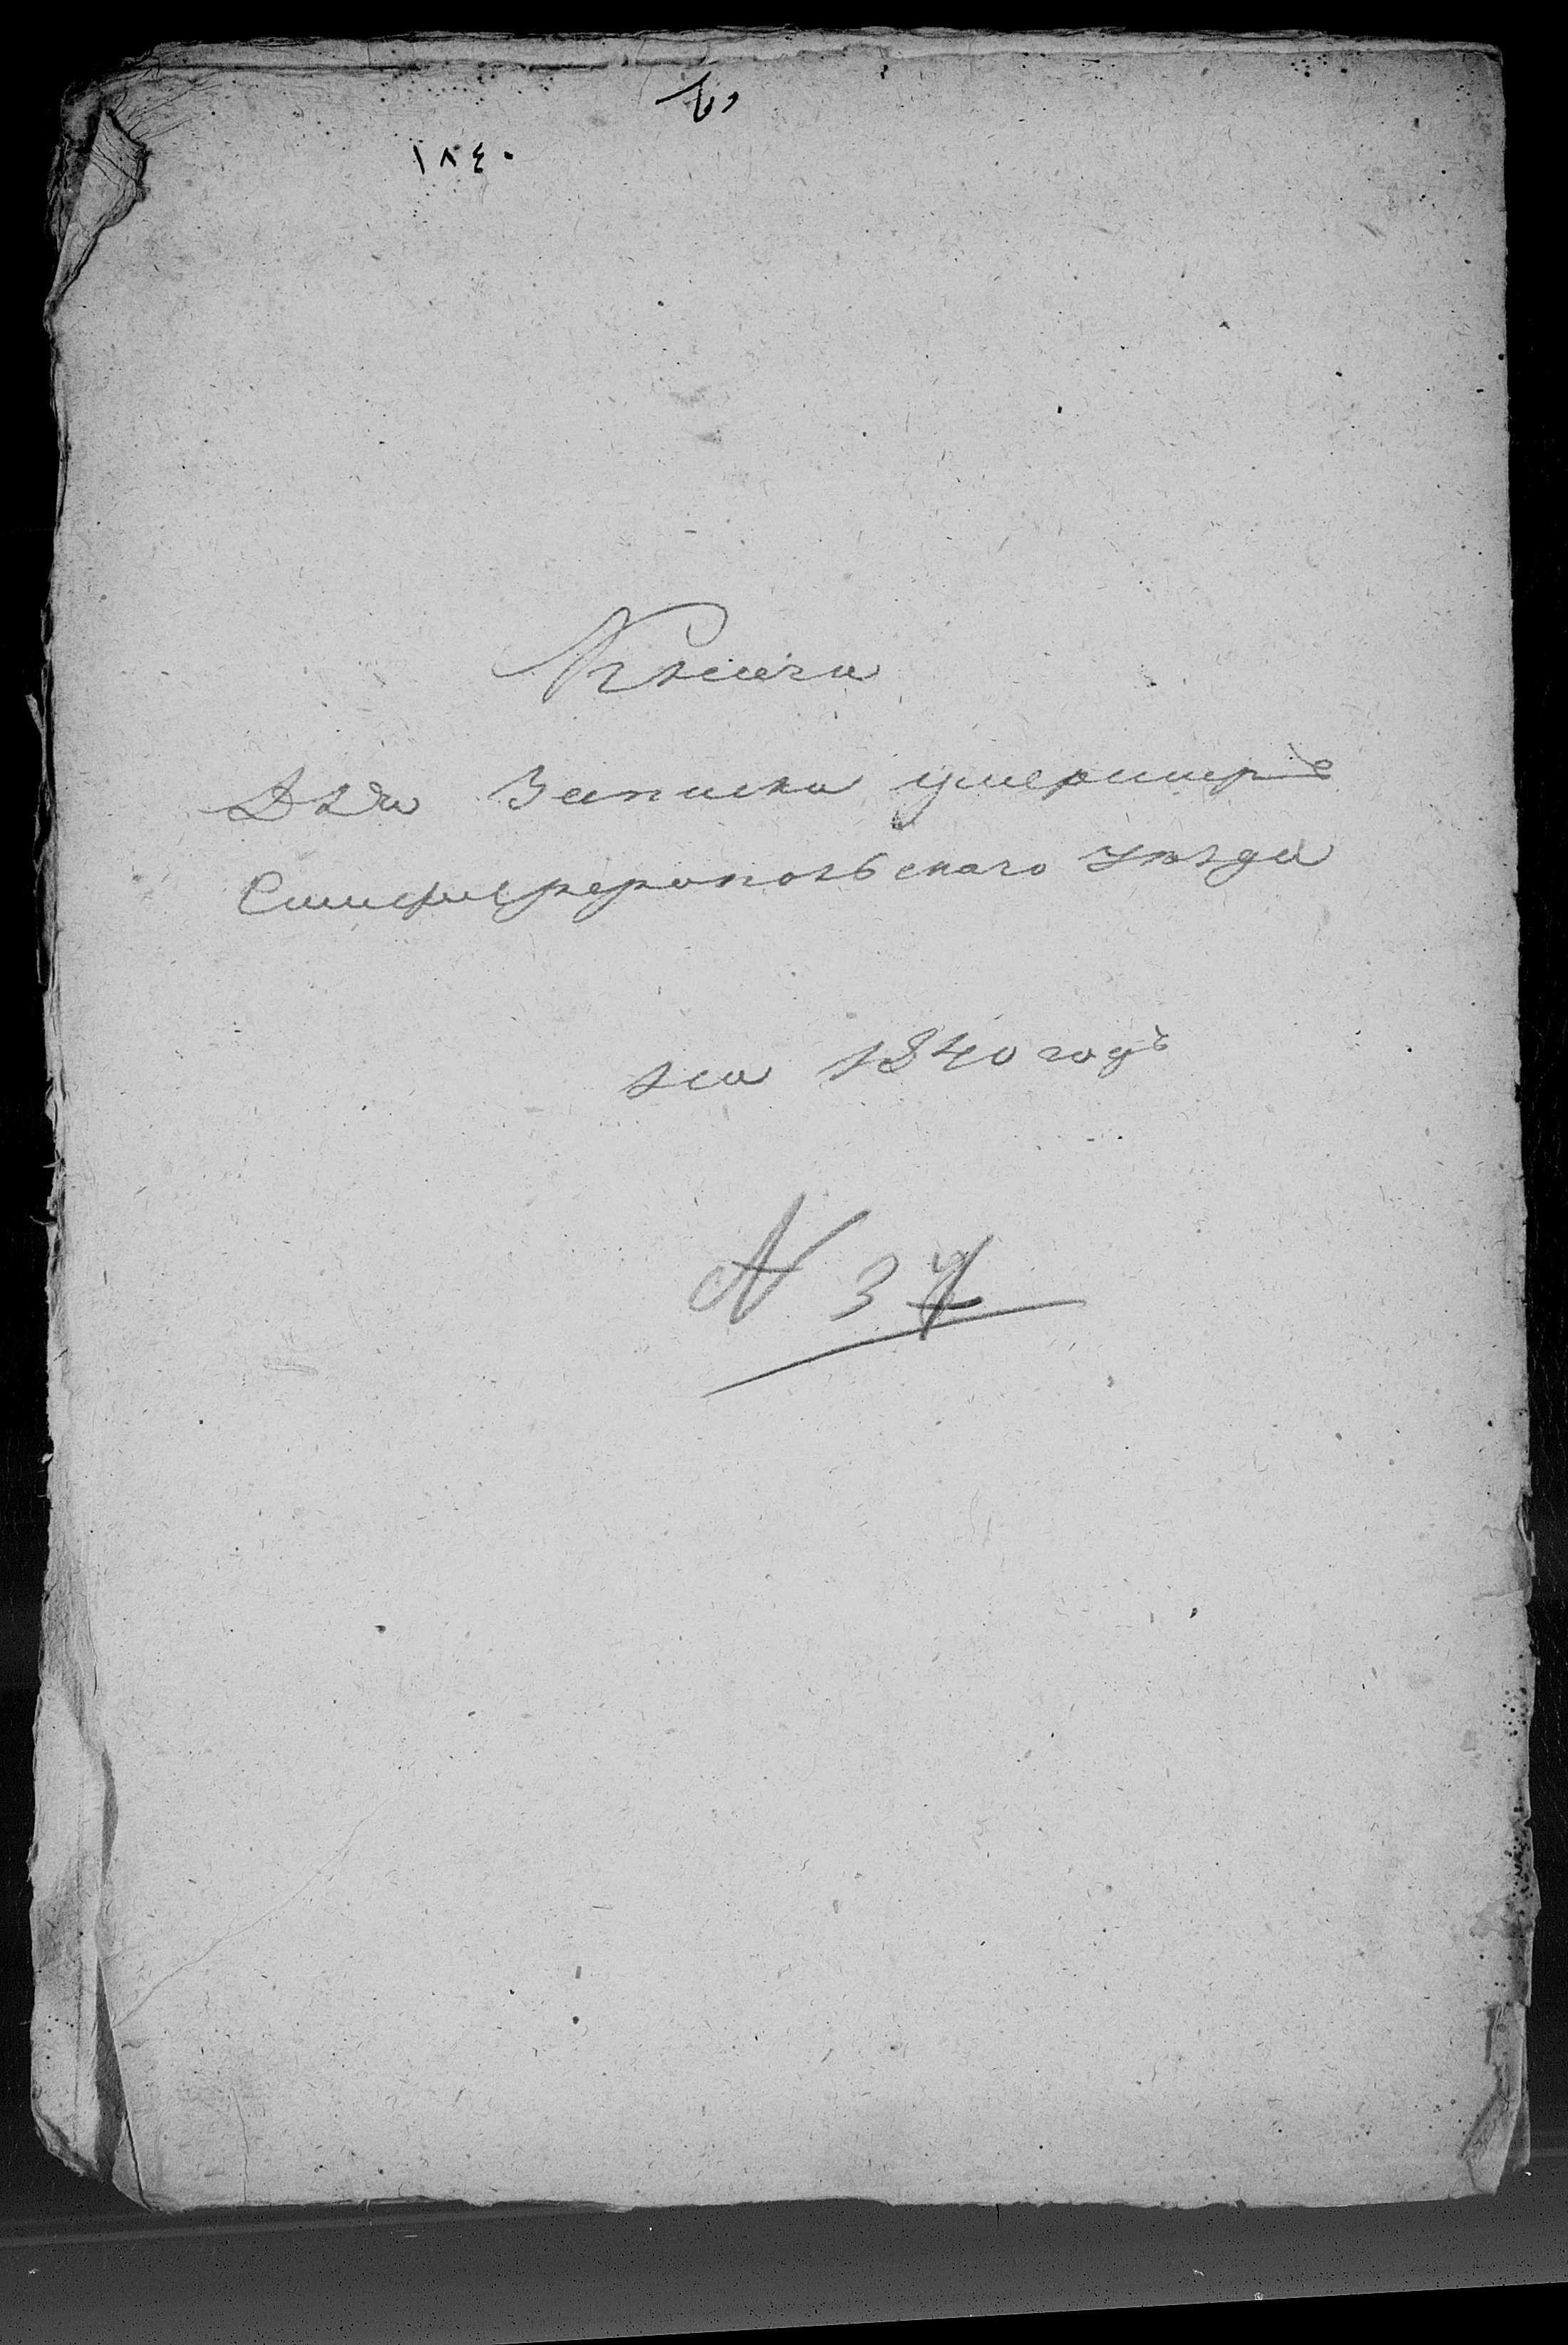 ١٨٤٠
Книга
Для Записки умерших
Симферопольскаго Уѣзда
на 1840 годъ
N 37